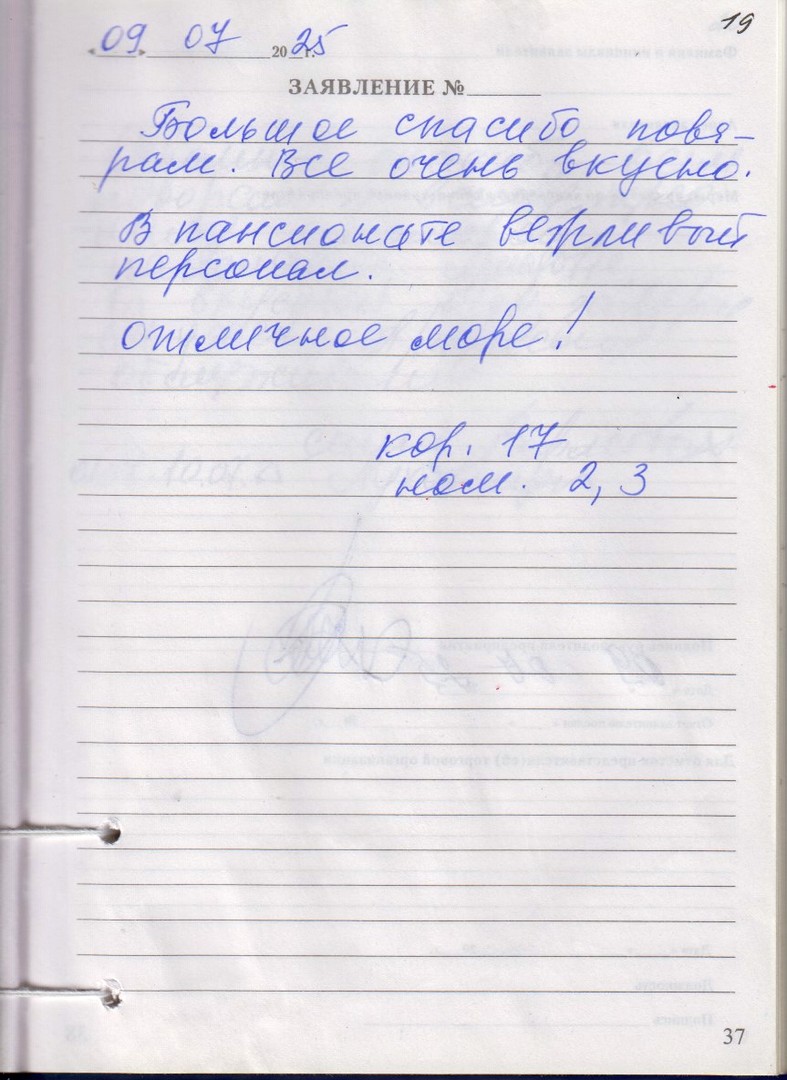 19
«09» 07 2025 г.
ЗАЯВЛЕНИЕ №
Большое спасибо повя-
рам. Все очень вкусно.
В пансионате вежливый
персонал.
Отличное море!
кор. 17
ном. 2, 3
37